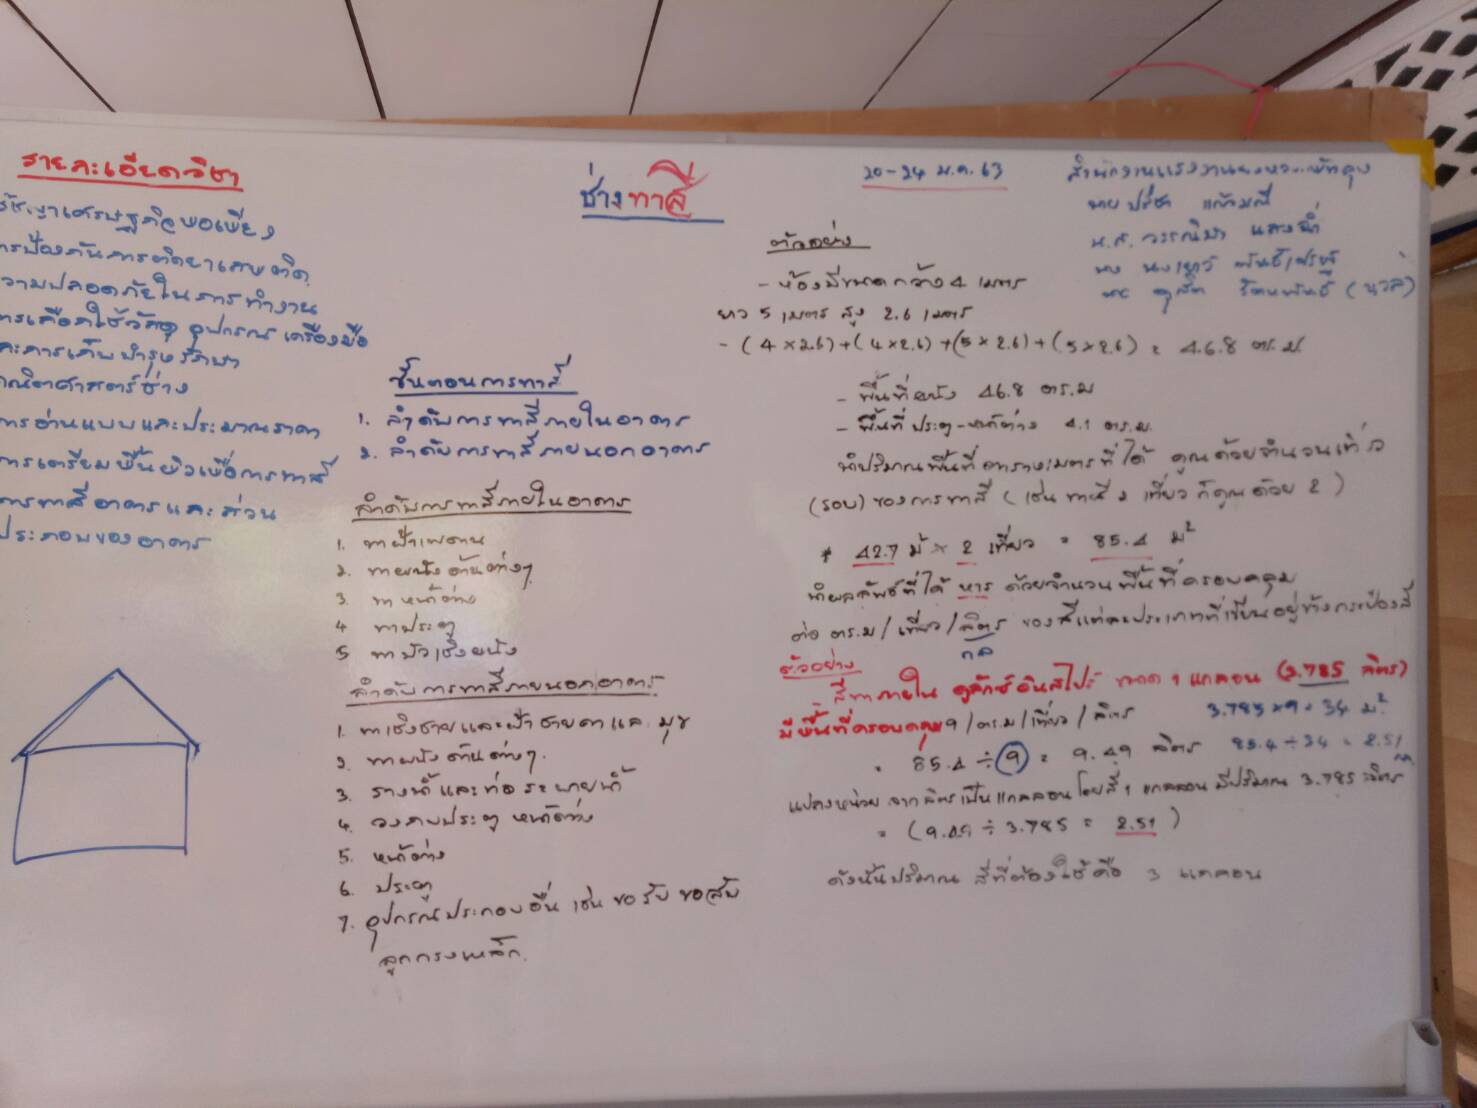 ช่างทาสี
20-24 ม.ค. 63
รายละเอียดวิชา
เศรษฐกิจพอเพียง
การป้องกันการติดยาเสพติด
ความปลอดภัยในการทำงาน
การเลือกใช้วัสดุ อุปกรณ์ เครื่องมือ
และการเก็บบำรุงรักษา
คณิตศาสตร์ช่าง
การอ่านแบบและประมาณราคา
การเตรียมพื้นผิวเพื่อการทาสี
การทาสีอาคารและส่วน
ประกอบของอาคาร
ขั้นตอนการทาสี
1. ลำดับการทาสีภายในอาคาร
2. ลำดับการทาสีภายนอกอาคาร
ลำดับการทาสีภายในอาคาร
1. ทาฝ้าเพดาน
2. ทาผนังด้านต่างๆ
3. ทาหน้าต่าง
4 ทาประตู
5 ทาบัวเชิงผนัง
ลำดับการทาสีภายนอกอาคาร
1. ทาเชิงชายและฝ้าชายคา และ มุข
2. ทาผนังด้านต่างๆ.
3. รางน้ำและท่อระบายน้ำ
4. วงกบประตู หน้าต่าง
5. หน้าต่าง
6. ประตู
7. อุปกรณ์ประกอบอื่น เช่น ขอรับ ขอสับ
ลูกกรงเหล็ก.
สำนักงานแรงงานจังหวัดพัทลุง
นาย ปรีชา
น.ส. วรรณิษา
นาง
นาย ดุสิต
ตัวอย่าง
- ห้องมีขนาดกว้าง 4 เมตร
ยาว 5 เมตร สูง 2.6 เมตร
- (4 × 2.6) + (4 × 2.6) + (5 × 2.6) + (5 × 2.6) = 46.8 ตร.ม.
- พื้นที่ผนัง 46.8 ตร.ม
- พื้นที่ประตู-หน้าต่าง 4.1 ตร.ม.
นำปริมาณพื้นที่ตารางเมตรที่ได้ คูณด้วยจำนวนเที่ยว
(รอบ) ของการทาสี (เช่น ทาสี 2 เที่ยว ก็คูณด้วย 2)
* 42.7 ม² × 2 เที่ยว = 85.4 ม²
นำผลลัพธ์ที่ได้ หาร ด้วยจำนวนพื้นที่ครอบคลุม
ต่อ ตร.ม/เที่ยว/ลิตร ของสีแต่ละประเภทที่เขียนอยู่ข้างกระป๋องสี
กล
ตัวอย่าง
สีทาภายใน ดูลักซ์อินสไปร์ ขนาด 1 แกลลอน (3.785 ลิตร)
มีพื้นที่ครอบคลุม 9/ตร.ม/เที่ยว/ลิตร 3.785×9 = 34 ม²
= 85.4 ÷ 9 = 9.49 ลิตร 85.4 ÷ 34 = 2.51
แปลงหน่วย จากลิตรเป็นแกลลอน โดยสี 1 แกลลอน มีปริมาณ 3.785 ลิตร
= (9.49 ÷ 3.785 = 2.51)
ดังนั้นปริมาณ สีที่ต้องใช้คือ 3 แกลลอน